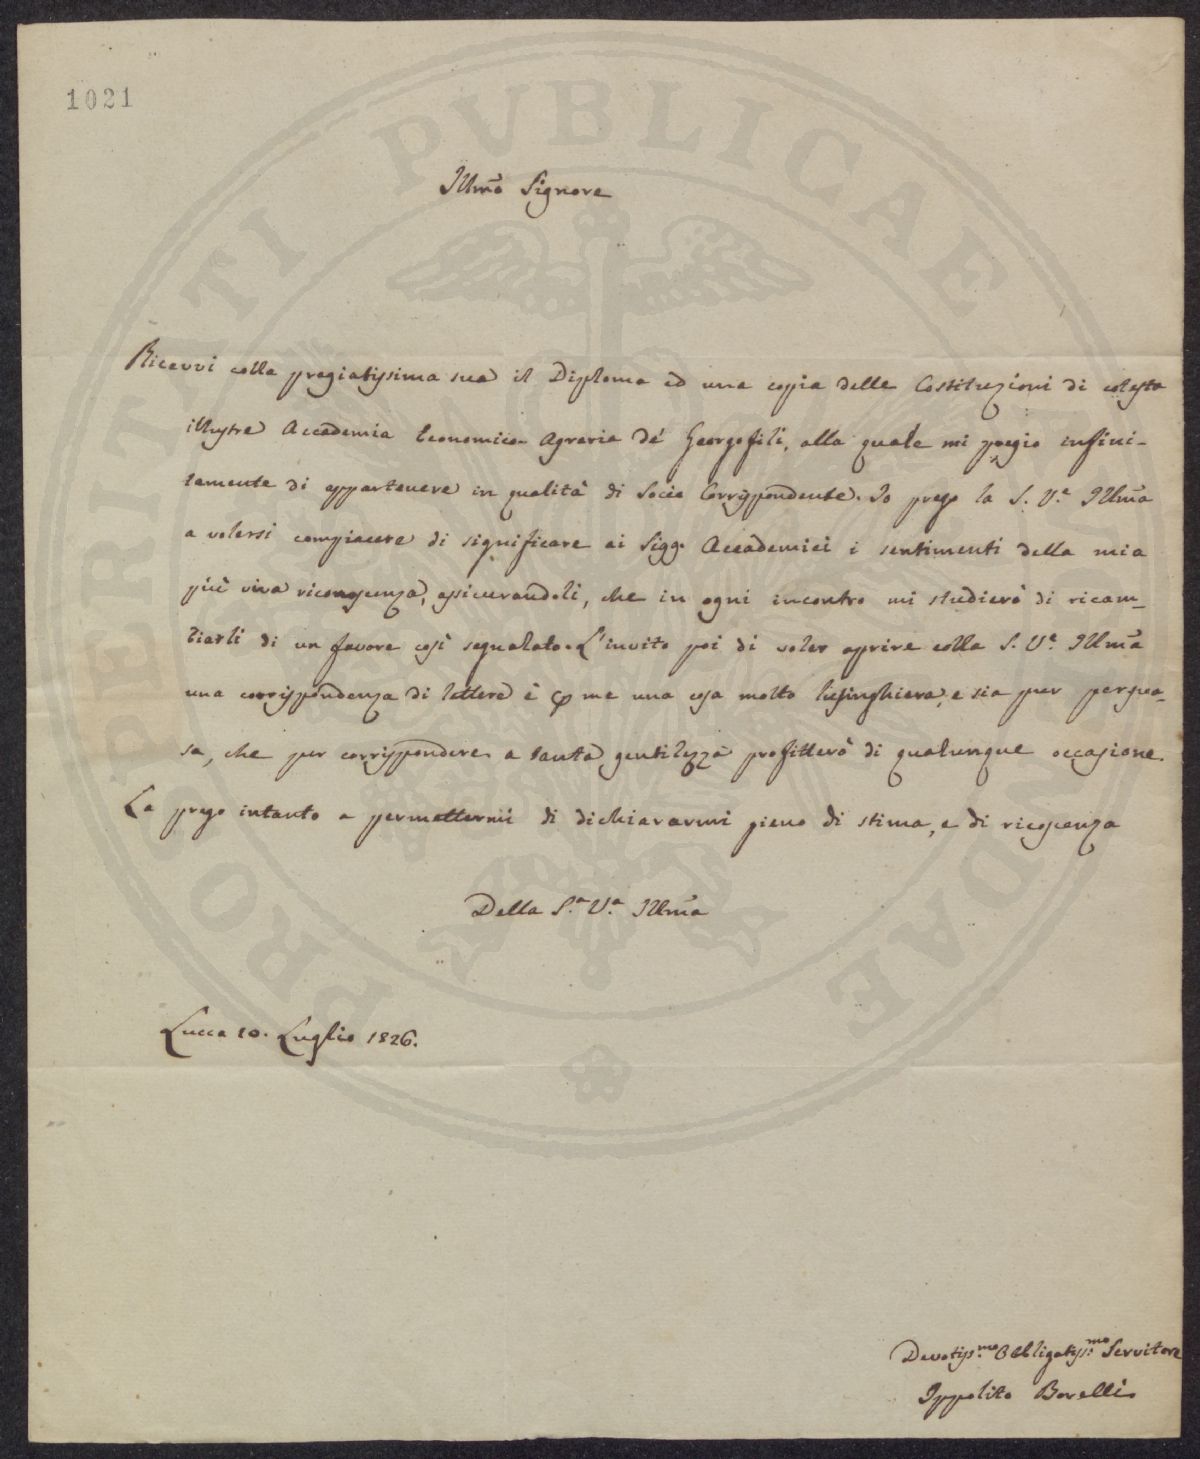 1021
Illmo Signore
Ricevvi colla pregiatissima sua il Diploma ed una copia delle Costituzioni di cotesta
illustre Accademia Economico Agraria de' Georgofili, alla quale mi pregio infini-
tamente di appartenere in qualità di Socio Corrispondente. Io prego la S. V.a Illma
a volersi compiacere di significare ai Sigg. Accademici i sentimenti della mia
più viva riconoscenza, assicurandoli, che in ogni incontro mi studierò di ricam-
biarli di un favore così segnalato. L'invito poi di voler aprire colla S. V.a Illma
una corrispondenza di lettere è p me una cosa molto lusinghiera, e sia pur persua-
sa, che per corrispondere a tanta gentilezza profitterò di qualunque occasione.
La prego intanto a permettermi di dichiararmi pieno di stima, e di riconoscenza
Della S.a V.a Illma
Lucca 10. Luglio 1826.
Devotiss.mo Obbligatiss.mo Servitore
Ippolito Borelli
PROSPERITATI PVBLICAE AVGENDAE